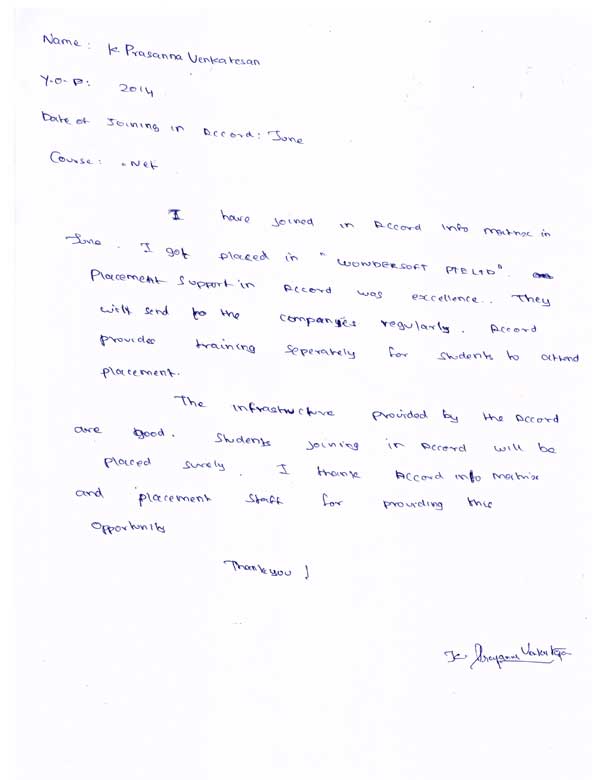 Name : K. Prasanna Venkatesan
Y.O.P: 2014
Date of Joining in Accord: June
Course: .Net
I have joined in Accord Info matrix in
June. I got placed in "WONDERSOFT PTE LTD".
Placement Support in Accord was excellence.. They
will send to the companyies regularly. Accord
provides training seperately for students to attend
placement.
The infrastucture provided by the Accord
are good. Students joining in Accord will be
placed surely. I thank Accord info matrix
and placement staff for providing this
opportunity
Thank you !
K. Prasanna Venkatesan